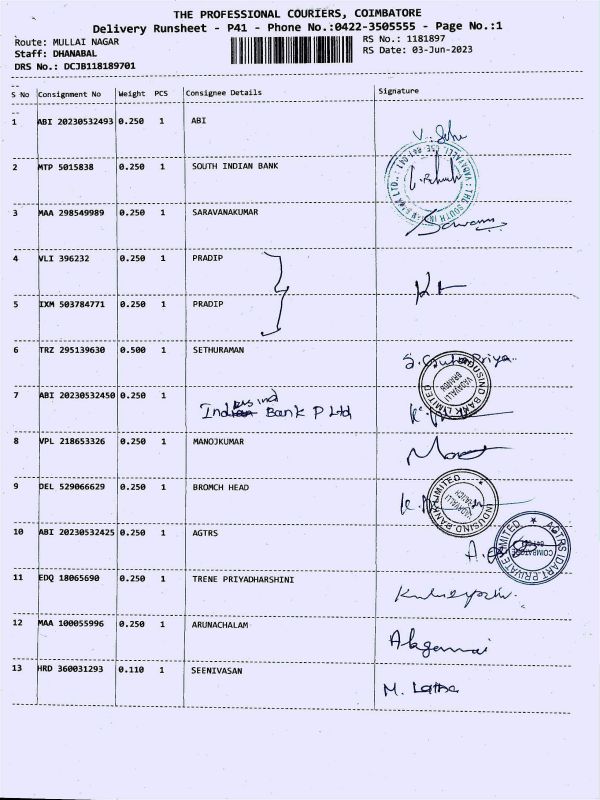 THE PROFESSIONAL COURIERS, COIMBATORE
Delivery Runsheet - P41 - Phone No.:0422-3505555 - Page No.:1
Route: MULLAI NAGAR
RS No.: 1181897
Staff: DHANABAL
RS Date: 03-Jun-2023
DRS No.: DCJB118189701
S No Consignment No Weight PCS Consignee Details Signature
1 ABI 20230532493 0.250 1 ABI
2 MTP 5015838 0.250 1 SOUTH INDIAN BANK
3 MAA 298549989 0.250 1 SARAVANAKUMAR
4 VLI 396232 0.250 1 PRADIP
5 IXM 503784771 0.250 1 PRADIP
6 TRZ 295139630 0.500 1 SETHURAMAN
7 ABI 20230532450 0.250 1
Indusind Bank P Ltd
INDUSIND BANK LIMITED
VADAVALLI BRANCH
8 VPL 218653326 0.250 1 MANOJKUMAR
9 DEL 529066629 0.250 1 BROMCH HEAD
INDUSIND BANK LIMITED
VADAVALLI BRANCH
10 ABI 20230532425 0.250 1 AGTRS
AGTRS (DART PRIVATE LIMITED
COIMBATORE
11 EDQ 18065690 0.250 1 TRENE PRIYADHARSHINI
12 MAA 100055996 0.250 1 ARUNACHALAM
Alagammai
13 HRD 360031293 0.110 1 SEENIVASAN
M. Latha